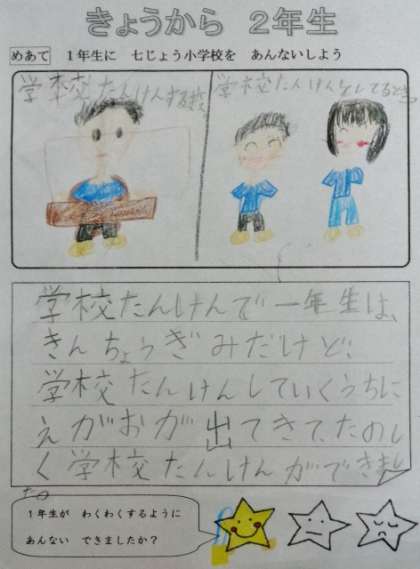 きょうから 2年生
めあて 1年生に 七じょう小学校を あんないしよう
学校たんけんする前
学校たんけんをしてるとき
学校たんけんで一年生は、
きんちょうぎみだけど、
学校たんけんしていくうちに
えがおが出てきて、たのし
く学校たんけんができまし
た。
1年生が わくわくするように
あんない できましたか?